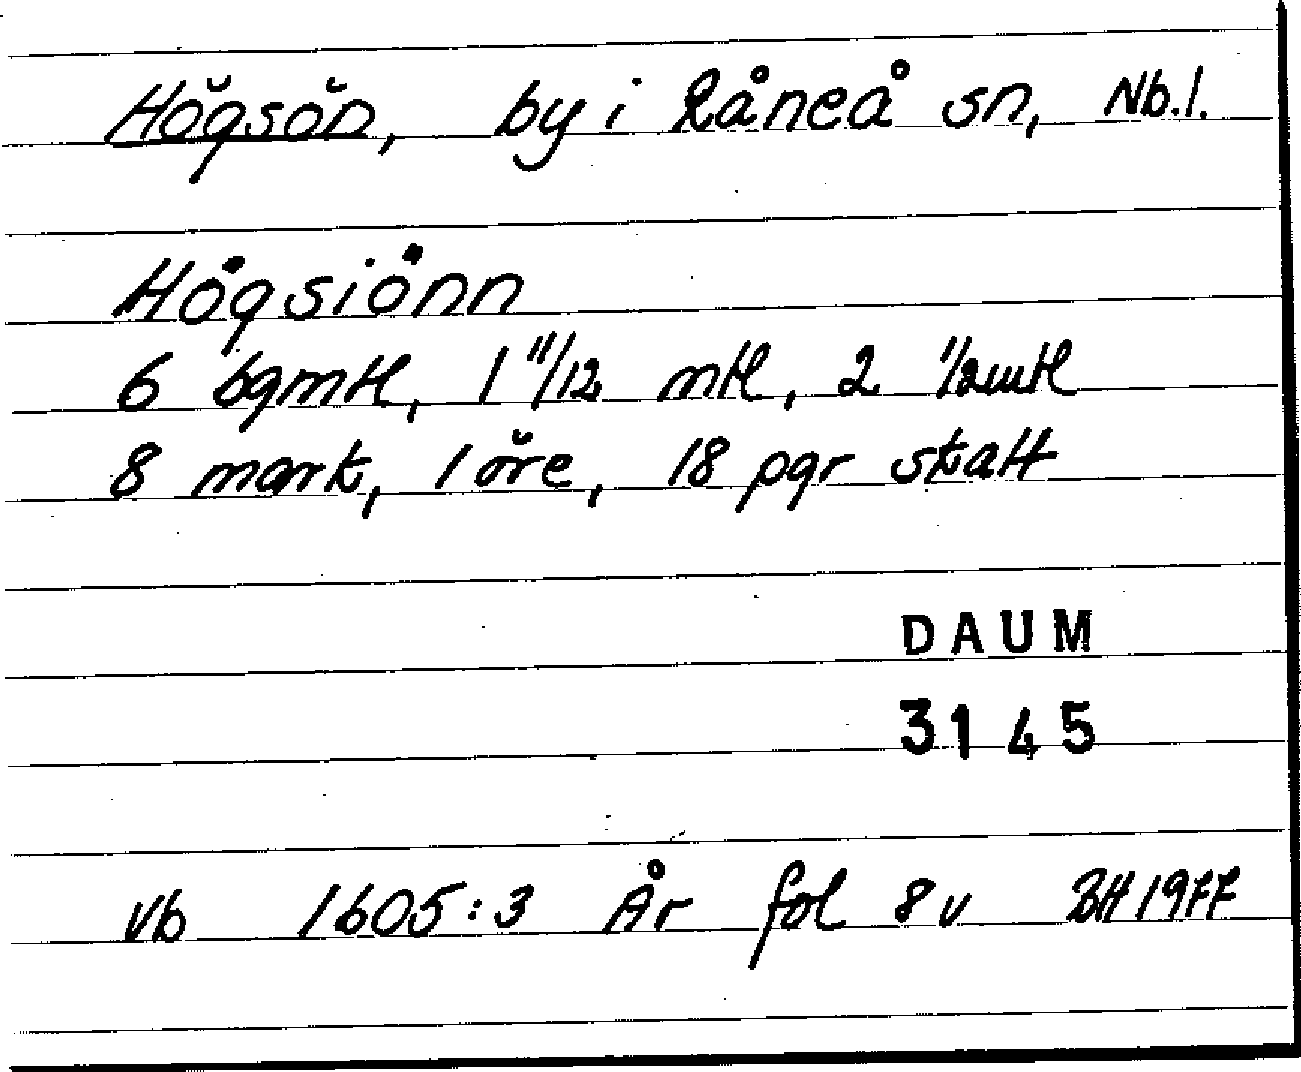 Högsön, by i Råneå sn, Nb.l.
Högsiönn
6 bgmtl, 1 11/12 mtl, 2 1/2 mtl
8 mark, 1 öre, 18 pgr skatt
DAUM
3145
Vb 1605:3 År fol 8v BH 1977